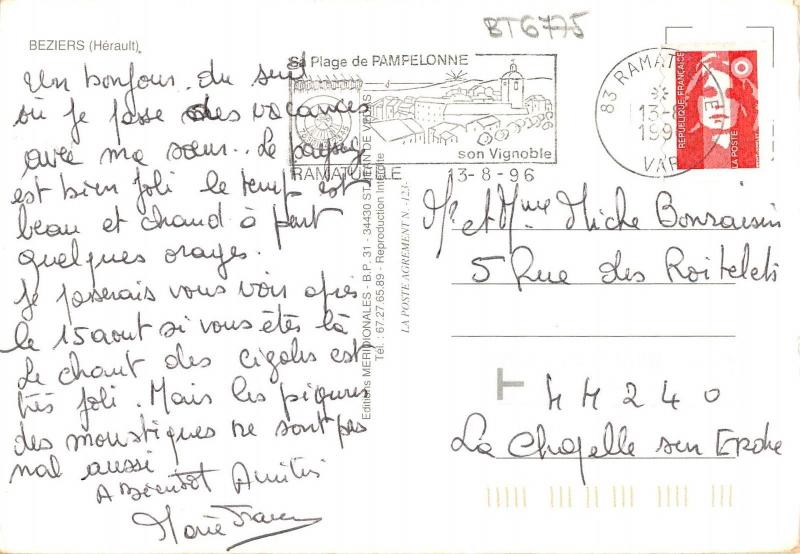 BT6775
BEZIERS (Hérault)
Un bonjour du sud
où je passe des vacances
avec ma sœur. Le paysage
est bien joli le temps est
beau et chaud à part
quelques orages.
Je passerais vous voir après
le 15 aout si vous êtes là
Le chant des cigales est
très joli. Mais les piqures
des moustiques ne sont pas
mal aussi
A Bientôt Amitiés
Marie France
Editions MERIDIONALES - B.P. 31 - 34430 ST JEAN DE VEDAS
Tél. : 67.27.65.89 - Reproduction Interdite
LA POSTE AGREMENT N. -123-
Sa Plage de PAMPELONNE
son Vignoble
RAMATUELLE
13-8-96
83 RAMATUELLE
13-8
199
VAR
REPUBLIQUE FRANÇAISE
LA POSTE
Mr et Mme Miche Bonraisin
5 Rue des Roitelets
T
44240
La Chapelle sur Erdre